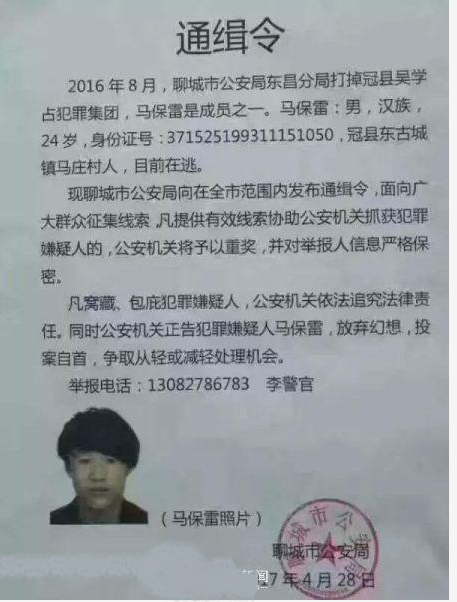 通缉令
2016年8月，聊城市公安局东昌分局打掉冠县吴学
占犯罪集团，马保雷是成员之一。马保雷：男，汉族，
24岁，身份证号：371525199311151050，冠县东古城
镇马庄村人，目前在逃。
现聊城市公安局向在全市范围内发布通缉令，面向广
大群众征集线索，凡提供有效线索协助公安机关抓获犯罪
嫌疑人的，公安机关将予以重奖，并对举报人信息严格保
密。
凡窝藏、包庇犯罪嫌疑人，公安机关依法追究法律责
任。同时公安机关正告犯罪嫌疑人马保雷，放弃幻想，投
案自首，争取从轻或减轻处理机会。
举报电话：13082786783 李警官
（马保雷照片）
聊城市公安局
聊城市公安局
17年4月28日